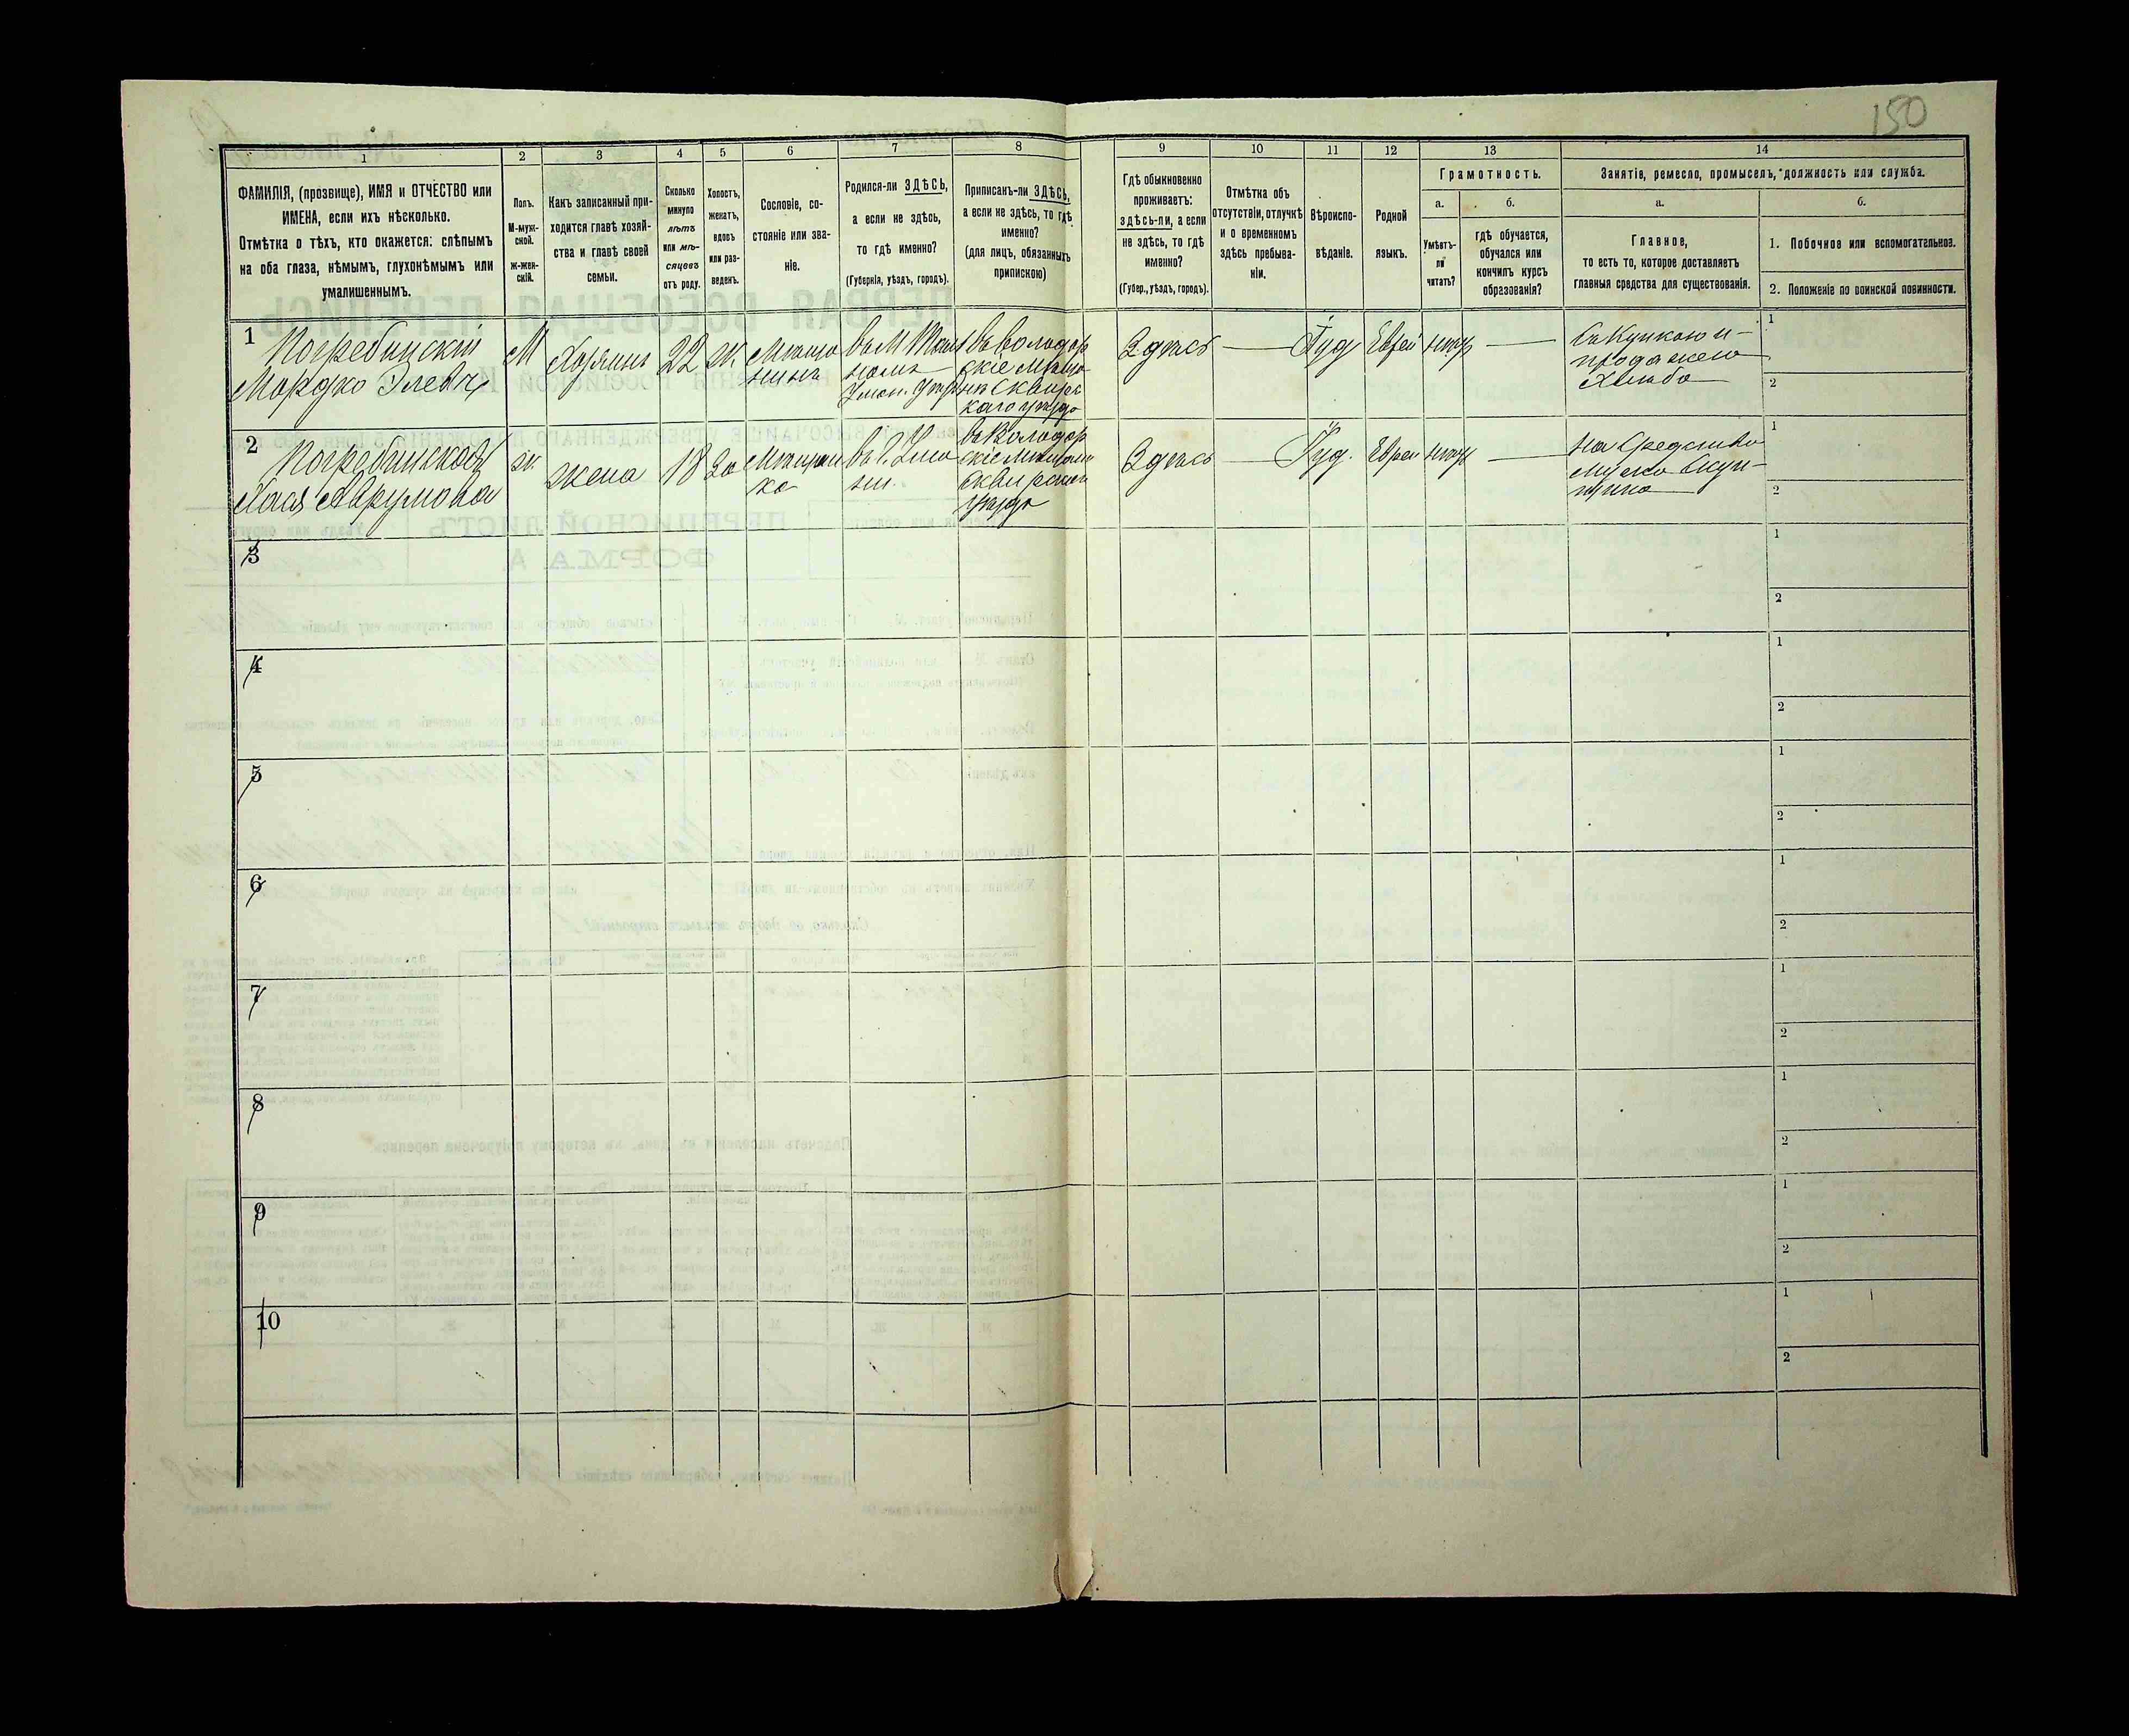 150
1
2
3
4
5
6
7
8
9
10
11
12
13
14
ФАМИЛІЯ, (прозвище), ИМЯ и ОТЧЕСТВО или
ИМЕНА, если ихъ нѣсколько.
Отмѣтка о тѣхъ, кто окажется: слѣпымъ
на оба глаза, нѣмымъ, глухонѣмымъ или
умалишеннымъ.
Полъ.
М-муж-
ской.
ж-жен-
скій.
Какъ записанный при-
ходится главѣ хозяй-
ства и главѣ своей
семьи.
Сколько
минуло
лѣтъ
или мѣ-
сяцевъ
отъ роду.
Холостъ,
женатъ,
вдовъ
или раз-
веденъ.
Сословіе, со-
стояніе или зва-
ніе.
Родился-ли ЗДѢСЬ,
а если не здѣсь,
то гдѣ именно?
(Губернія, уѣздъ, городъ).
Приписанъ-ли ЗДѢСЬ,
а если не здѣсь, то гдѣ
именно?
(для лицъ, обязанныхъ
припискою)
Гдѣ обыкновенно
проживаетъ:
здѣсь-ли, а если
не здѣсь, то гдѣ
именно?
(Губер., уѣздъ, городъ).
Отмѣтка объ
отсутствіи, отлучкѣ
и о временномъ
здѣсь пребыва-
ніи.
Вѣроиспо-
вѣданіе.
Родной
языкъ.
Грамотность.
а.
Умѣетъ-
ли
читать?
б.
гдѣ обучается,
обучался или
кончилъ курсъ
образованія?
Занятіе, ремесло, промыселъ, должность или служба.
а.
Главное,
то есть то, которое доставляетъ
главныя средства для существованія.
б.
1. Побочное или вспомогательное.
2. Положеніе по воинской повинности.
1
Погребинскій
Мордко Элевъ
М
Хозяинъ
22
ж.
Мѣща
нинъ
Умон.
въ Володар
ские
Сквирс
каго уѣзда
Здѣсь
Іуд
Еврей
нѣтъ
Покупкаю и
продажею
хлѣба
1
2
2
Погребинская
Хася Аврумова
ж.
жена
18
За
Мѣщан
ка
въ Володар
ские
уѣзда
Здѣсь
Іуд.
Еврей
нѣтъ
На средства
мужа
1
2
3
1
2
4
1
2
5
1
2
6
1
2
7
1
2
8
1
2
9
1
2
10
1
2